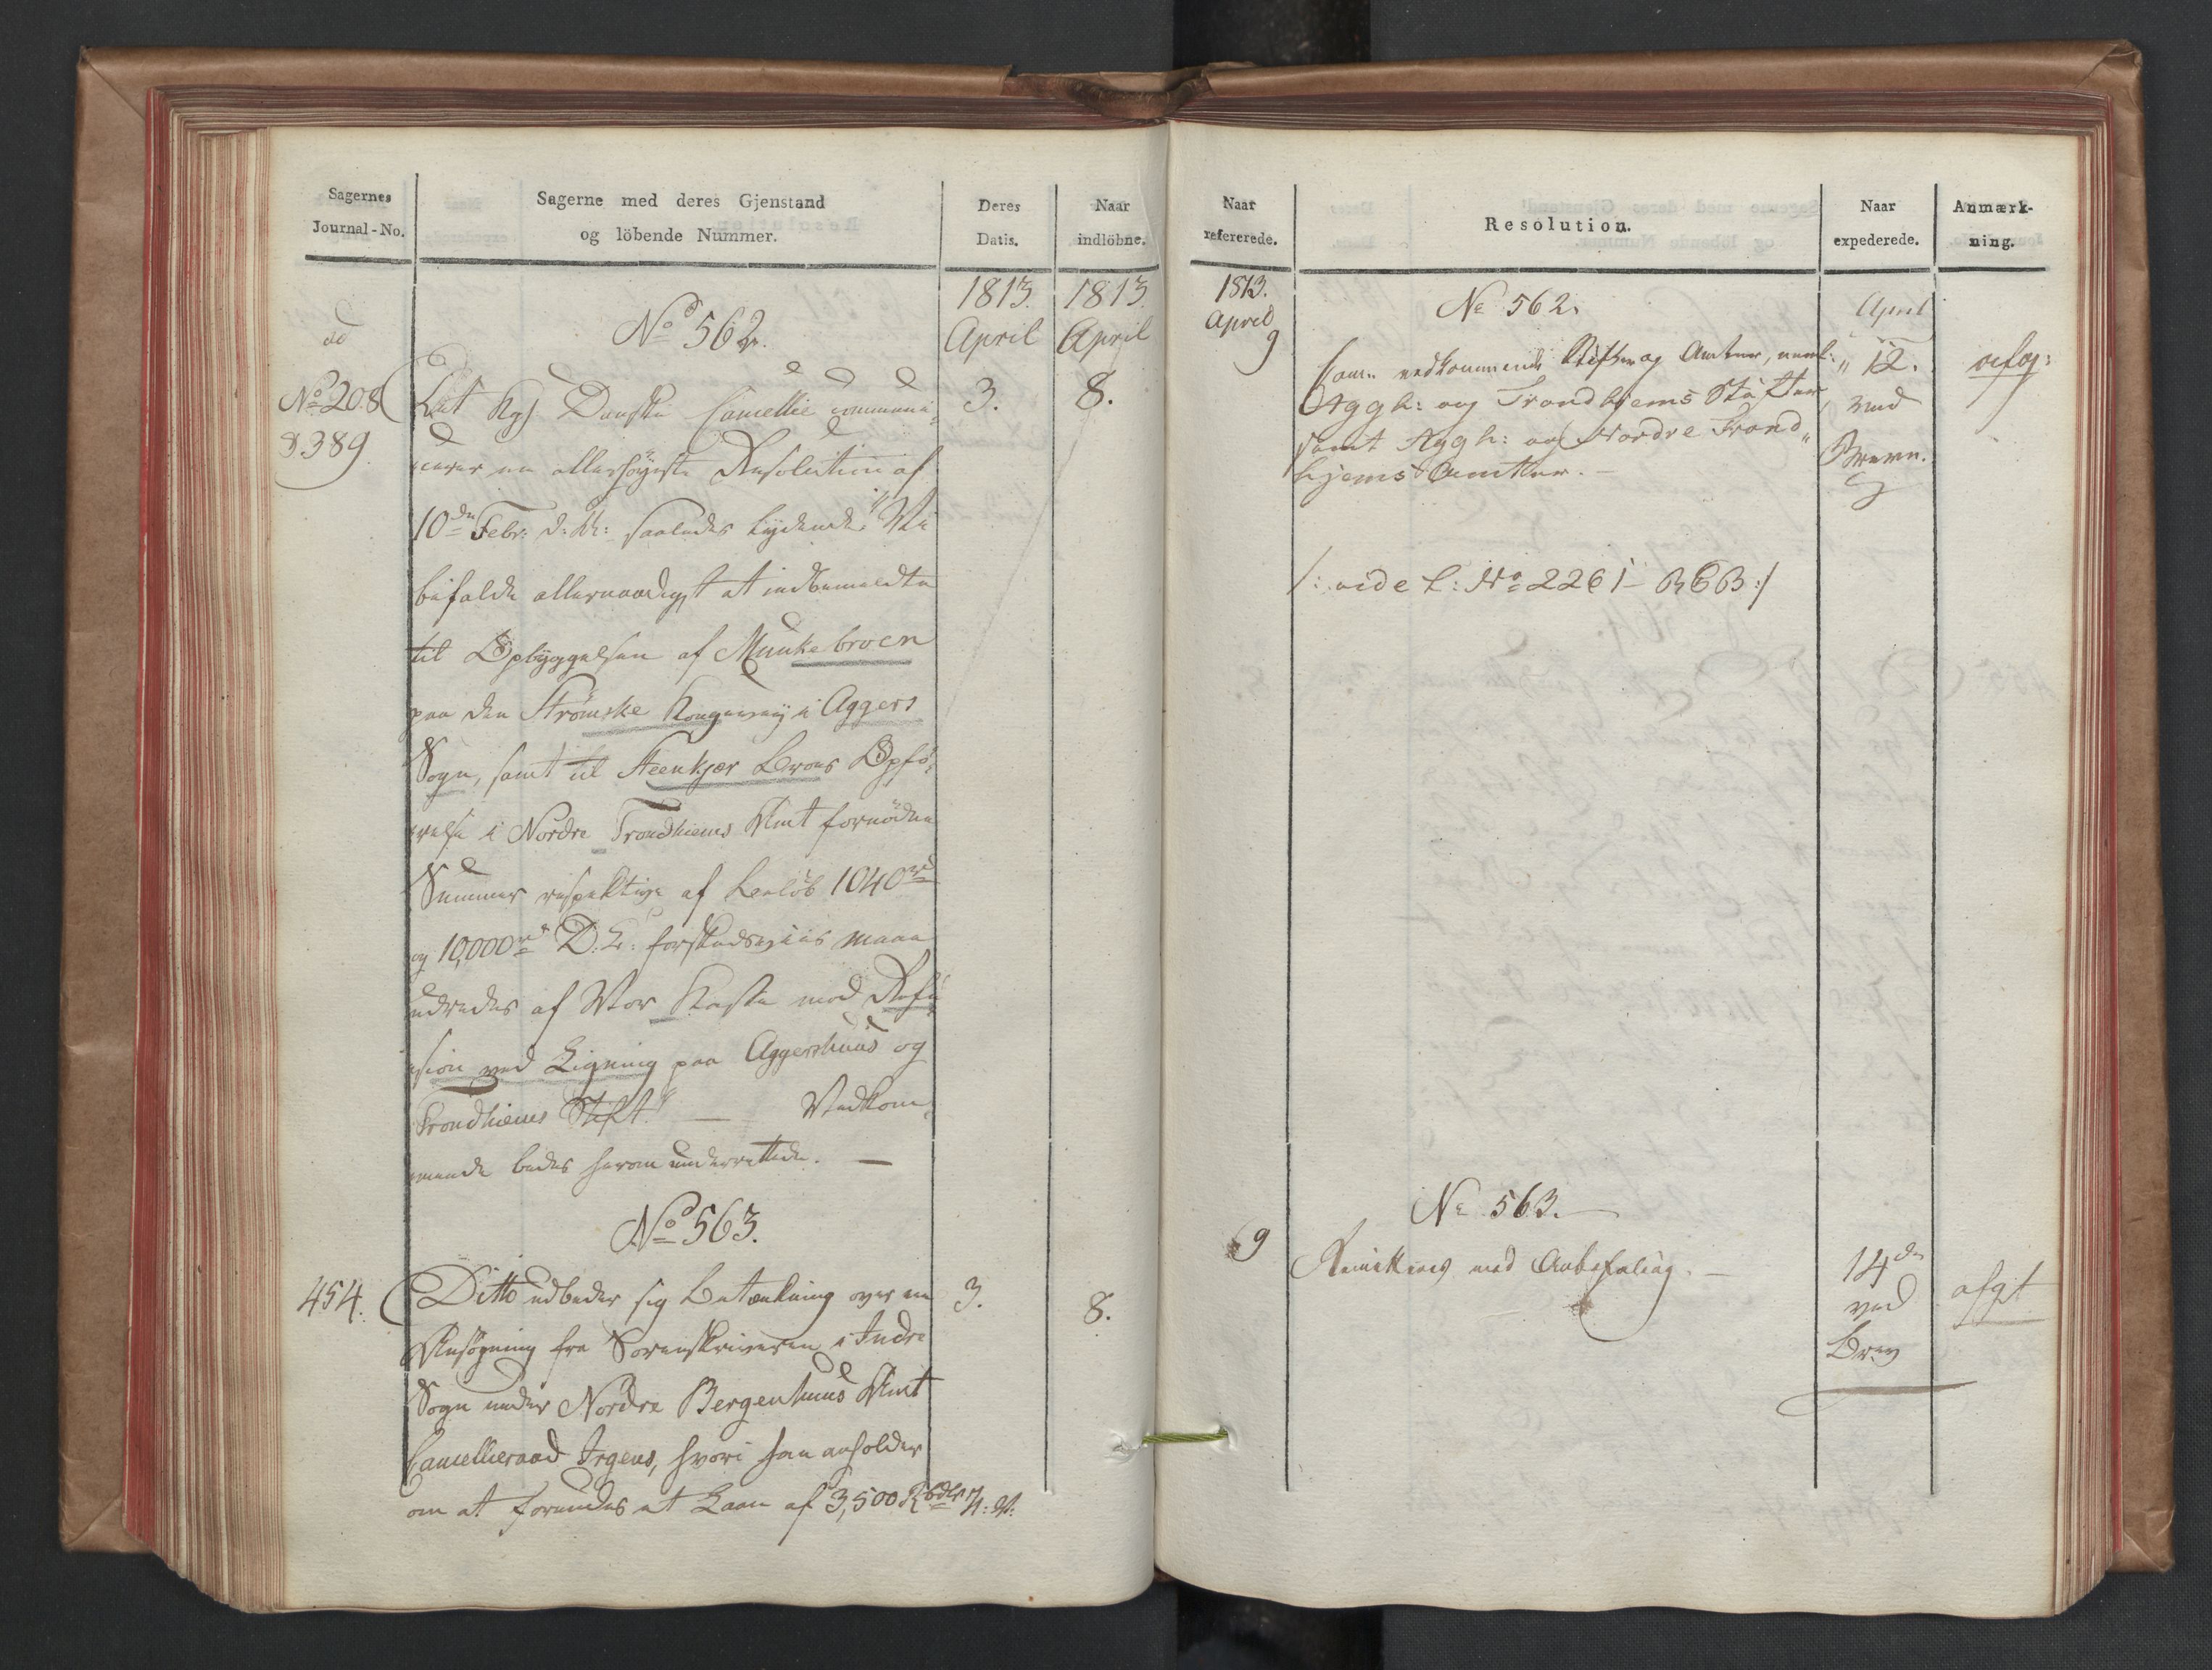 Sagernes
Journal-No.
Sagerne med deres Gjenstand
og löbende Nummer.
Deres
Datis.
Naar
indlöbne.
1813. 1813.
April April
ad
No 208
& 389.
No 562.
Det Kgl. Danske Cancellie communi„
cerer en allerhøyeste Resolution af
10de Febr: d: A: saaledes lydende: "Vi
bifalde allernaadigst at indbemeldte
til Opbyggelsen af Munkebroen
paa den Strömske Kongevey i Aggers
Sogn, samt til Steenkjær Broes Opfö„
relse i Nordre Trondhiems Amt fornödne
Summer respektive af Beløb 1040 rd
og 10,000 rd D: C: forskudsviis maae
udredes af Vor Kasse mod Refu„
sion ved Ligning paa Aggershuus og
Trondhiems Stift." — Vedkom„
mende bedes herom underrettede. —
3.
8.
No 563.
454.
Ditto udbeder sig Betænkning over en
Ansøgning fra Sorenskriveren i Indre
Sogn under Nordre Bergenhuus Amt
Cancellieraad Irgens, hvori han anholder
om at forundes et Laan af 3,500 Rbdlr N: V:
3.
8.
Naar
refererede.
Resolution.
Naar
expederede.
Anmærk-
ning.
1813.
April
9
No 562.
Com: vedkommende Stifter og Amter, neml:
Aggh: og Trondhjems Stifter
samt Aggh: og Nordre Trond„
hjems Amter. —
April
" 12.
ved
Breve.
afg:
/: vide L: No 2261 - RCB :/
No 563.
9
Remitteres med Anbefaling. —
14de
ved
Brev
afgt